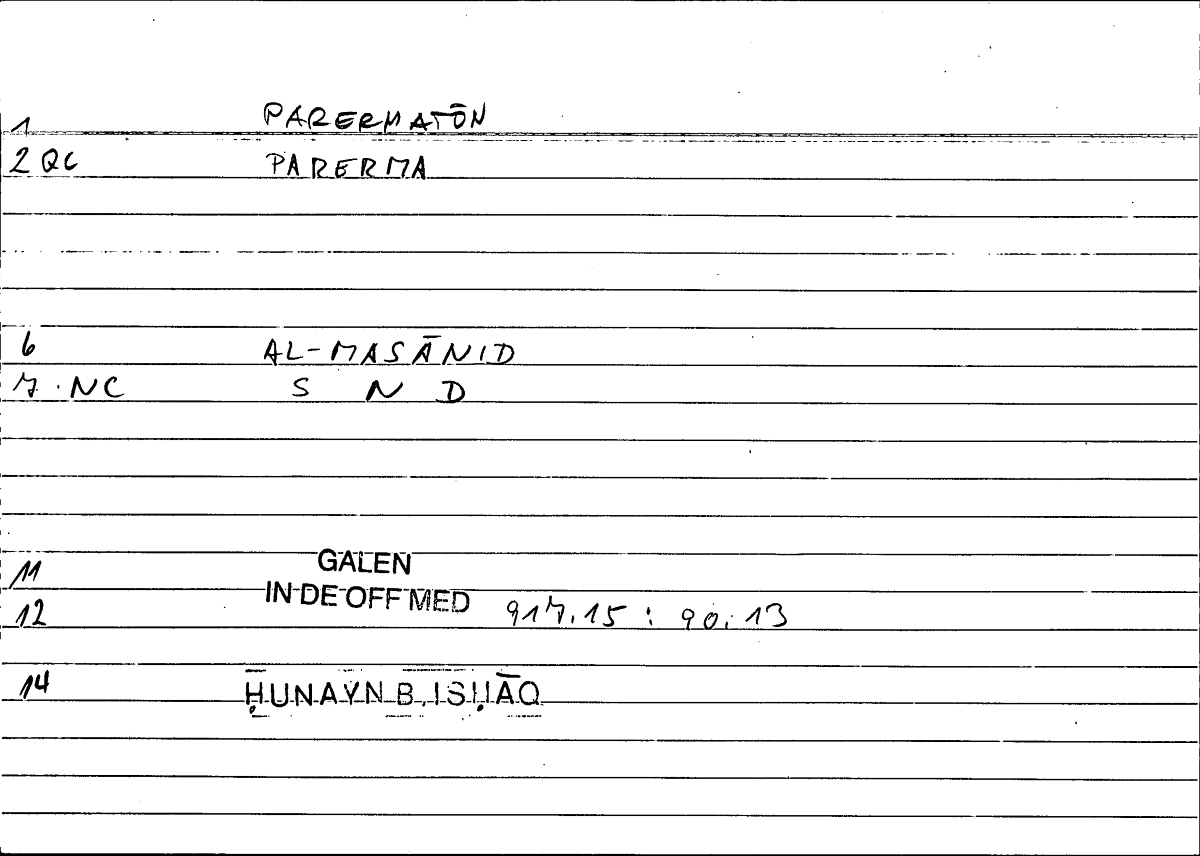 1 PARERMATŌN
2 QC PARERMA
6 AL-MASĀNID
7 NC S N D
11 GALEN
12 IN DE OFF MED 917.15 : 90.13
14 ḤUNAYN B. ISḤĀQ